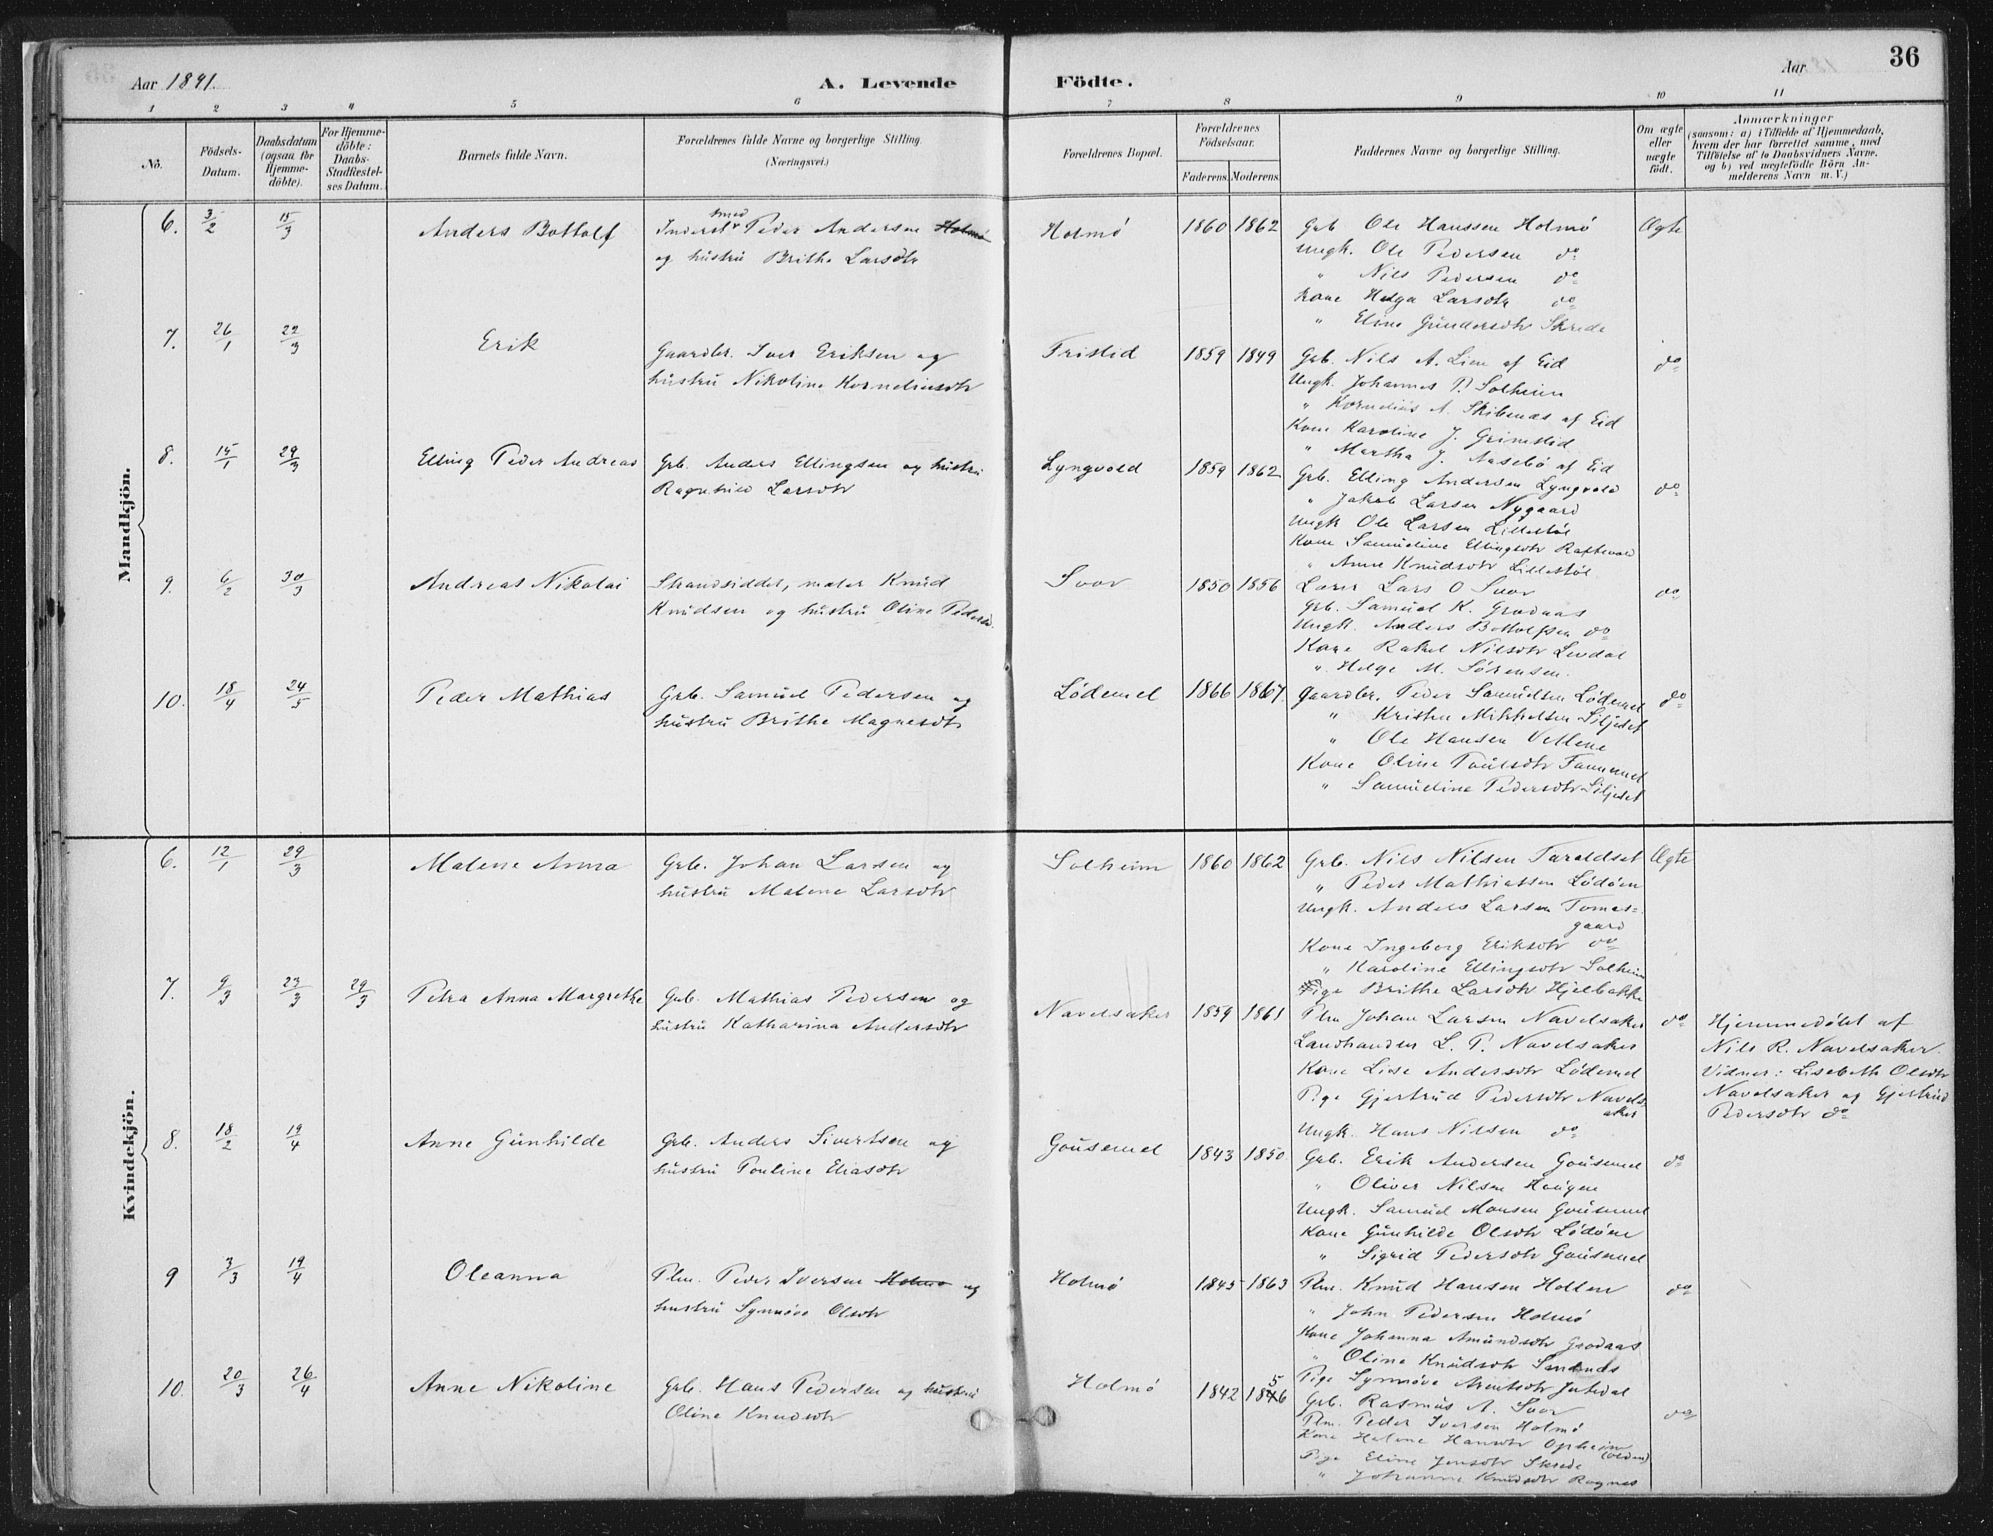 Aar 1891.
A. Levende
Födte.
Aar
36
1 2 3 4 5 6 7 8 9 10 11
No.
Födsels-Datum.
Daabsdatum (ogsaa for Hjemme-döbte).
For Hjemme-döbte: Daabs-Stadfæstel-ses Datum.
Barnets fulde Navn.
Forældrenes fulde Navne og borgerlige Stilling.
(Næringsvei.)
Forældrenes Bopæl.
Forældrenes Födselsaar.
Faderens. Moderens.
Faddernes Navne og borgerlige Stilling.
Om ægte eller uægte födt.
Anmærkninger
(saasom: a) i Tilfælde af Hjemmedaab, hvem der har forrettet samme, med Tilföielse af to Daabsvidners Navne, og b) ved uegtefödte Börn An-melderens Navn m. V.)
Mandkjön.
6. 3/2 15/3 Anders Bottolf
Inderst smed Peder Andersen Holmø
og hustru Brithe Larsdtr
Holmø 1860 1862
Grb Ole Hanssen Holmø Ægte
Ungk. Ole Pedersen do
" Nils Pedersen do
Kone Helga Larsdtr do
" Eline Gundersdtr Skrede
7. 26/1 22/3 Erik
Gaardbr. Iver Eriksen og
hustru Nikoline Korneliusdtr
Fristid 1859 1849
Grb. Nils A. Lien af Eid do
Ungk. Johannes P. Solheim
" Kornelius A. Skibenes af Eid
Kone Karoline J. Grimstid
" Martha J. Aasebø af Eid
8. 15/1 29/3 Elling Peder Andreas
Grb. Anders Ellingsen og hustru
Ragnhild Larsdtr
Lyngvold 1859 1862
Grb. Elling Andersen Lyngvold do
" Jakob Larsen Nygaard
Ungk Ole Larsen Lillestøl
Kone Samueline Ellingsdtr Raftevold
" Anne Knudsdtr Lillestøl
9. 6/2 30/3 Andreas Nikolai
Strandsidder, maler Knud
Knudsen og hustru Oline Pedersd.
Svor 1850 1856
Lærer Lars O Svor do
Grb. Samuel K. Grodaas
Ungk. Anders Bottolfsen do
Kone Rakel Nilsdtr Levdal
" Helge M. Sörensen.
10. 18/4 24/5 Peder Mathias
Grb. Samuel Pedersen og
hustru Brithe Magnesdtr
Lödemel 1866 1867.
Gaardbr. Peder Samuelsen Lödemel do
" Kristen Mikkelsen Siljeset
" Ole Hansen Vellene
Kone Oline Poulsdtr Tommel
" Samueline Pedersdtr Siljeset
Kvindekjön.
6. 12/1 29/3 Malene Anna
Grb. Johan Larsen og
hustru Malene Larsdtr
Solheim 1860 1862
Grb. Nils Nilsen Taraldset Ægte
" Peder Mathiassen Lödöen
Ungk. Anders Larsen Tomas=
gaard
Kone Ingeborg Eriksdtr do
" Karoline Ellingsdtr Solheim
Pige Brithe Larsdtr Hjelbakke
7. 9/3 23/3 29/3 Petra Anna Margrethe
Grb. Mathias Pedersen og
hustru Katharina Andersdtr
Navelsaker 1859 1861
Plm Johan Larsen Navelsaker do
Landhandler L. P. Navelsaker
Kone Lise Andersdtr Lödemel
Pige Gjertrud Pedersdtr Navels-
aker
Ungk. Hans Nilsen do
Hjemmedöbt af
Nils R. Navelsaker.
Vidner: Lisebeth Olsdtr
Navelsaker og Gjertrud
Pedersdtr do
8. 18/2 19/4 Anne Gunhilde
Grb. Anders Sivertsen og
hustru Pouline Eliasdtr
Gousemel 1843 1850
Grb. Erik Andersen Gousemel do
" Oliver Nilsen Haugen
Ungk. Samuel Monsen Gousemel
Kone Gunhilde Olsdtr Lödöen
" Sigrid Pedersdtr Gousemel
9 3/3 19/4 Oleanna
Plm. Peder Iversen Holmø og
hustru Synnöve Olsdtr
Holmø 1845 1863
Plm. Knud Hansen Hollen do
" John Pedersen Holmø
Kone Johanna Amundsdtr Grodaas
" Oline Knudsdtr Sandnes
Pige Synnöve Arentsdtr
10. 20/3 26/4 Anne Nikoline
Grb. Hans Pedersen og hustru
Oline Knudsdtr
Holmø 1842 1856
Grb. Rasmus A. Svor do
Plm. Peder Iversen Holmø
Kone Helene Hansdtr Opheim
(Olden)
Pige Eline Jensdtr Skrede
" Johanne Knudsdtr Rognes